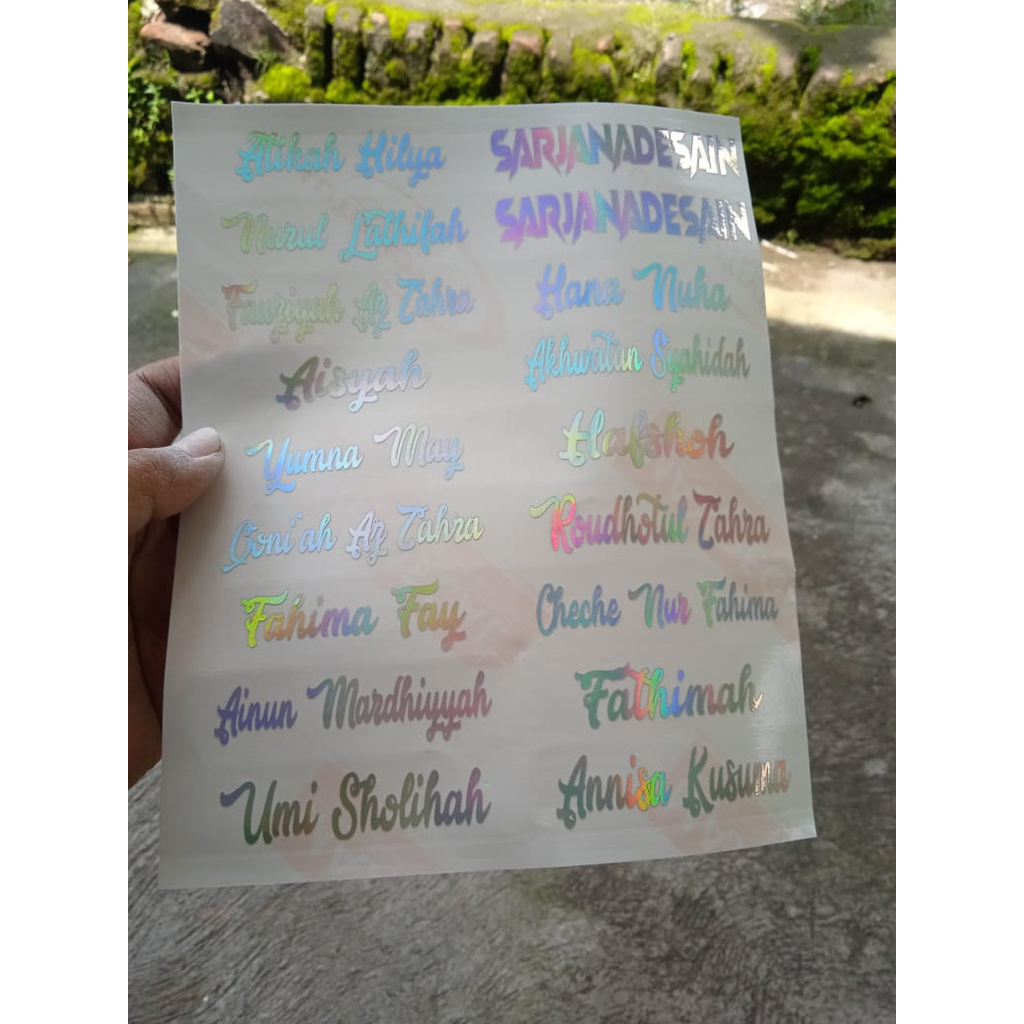 Atikah Hilya
Nurul Lathifah
Fauziyah Az Zahra
Aisyah
Yumna May
Qoni'ah Az Zahra
Fahima Fay
Ainun Mardhiyyah
Umi Sholihah
SARJANADESAIN
SARJANADESAIN
Hana Nuha
Akhwatun Syahidah
Hafshoh
Roudhotul Zahra
Cheche Nur Fahima
Fathimah
Annisa Kusuma